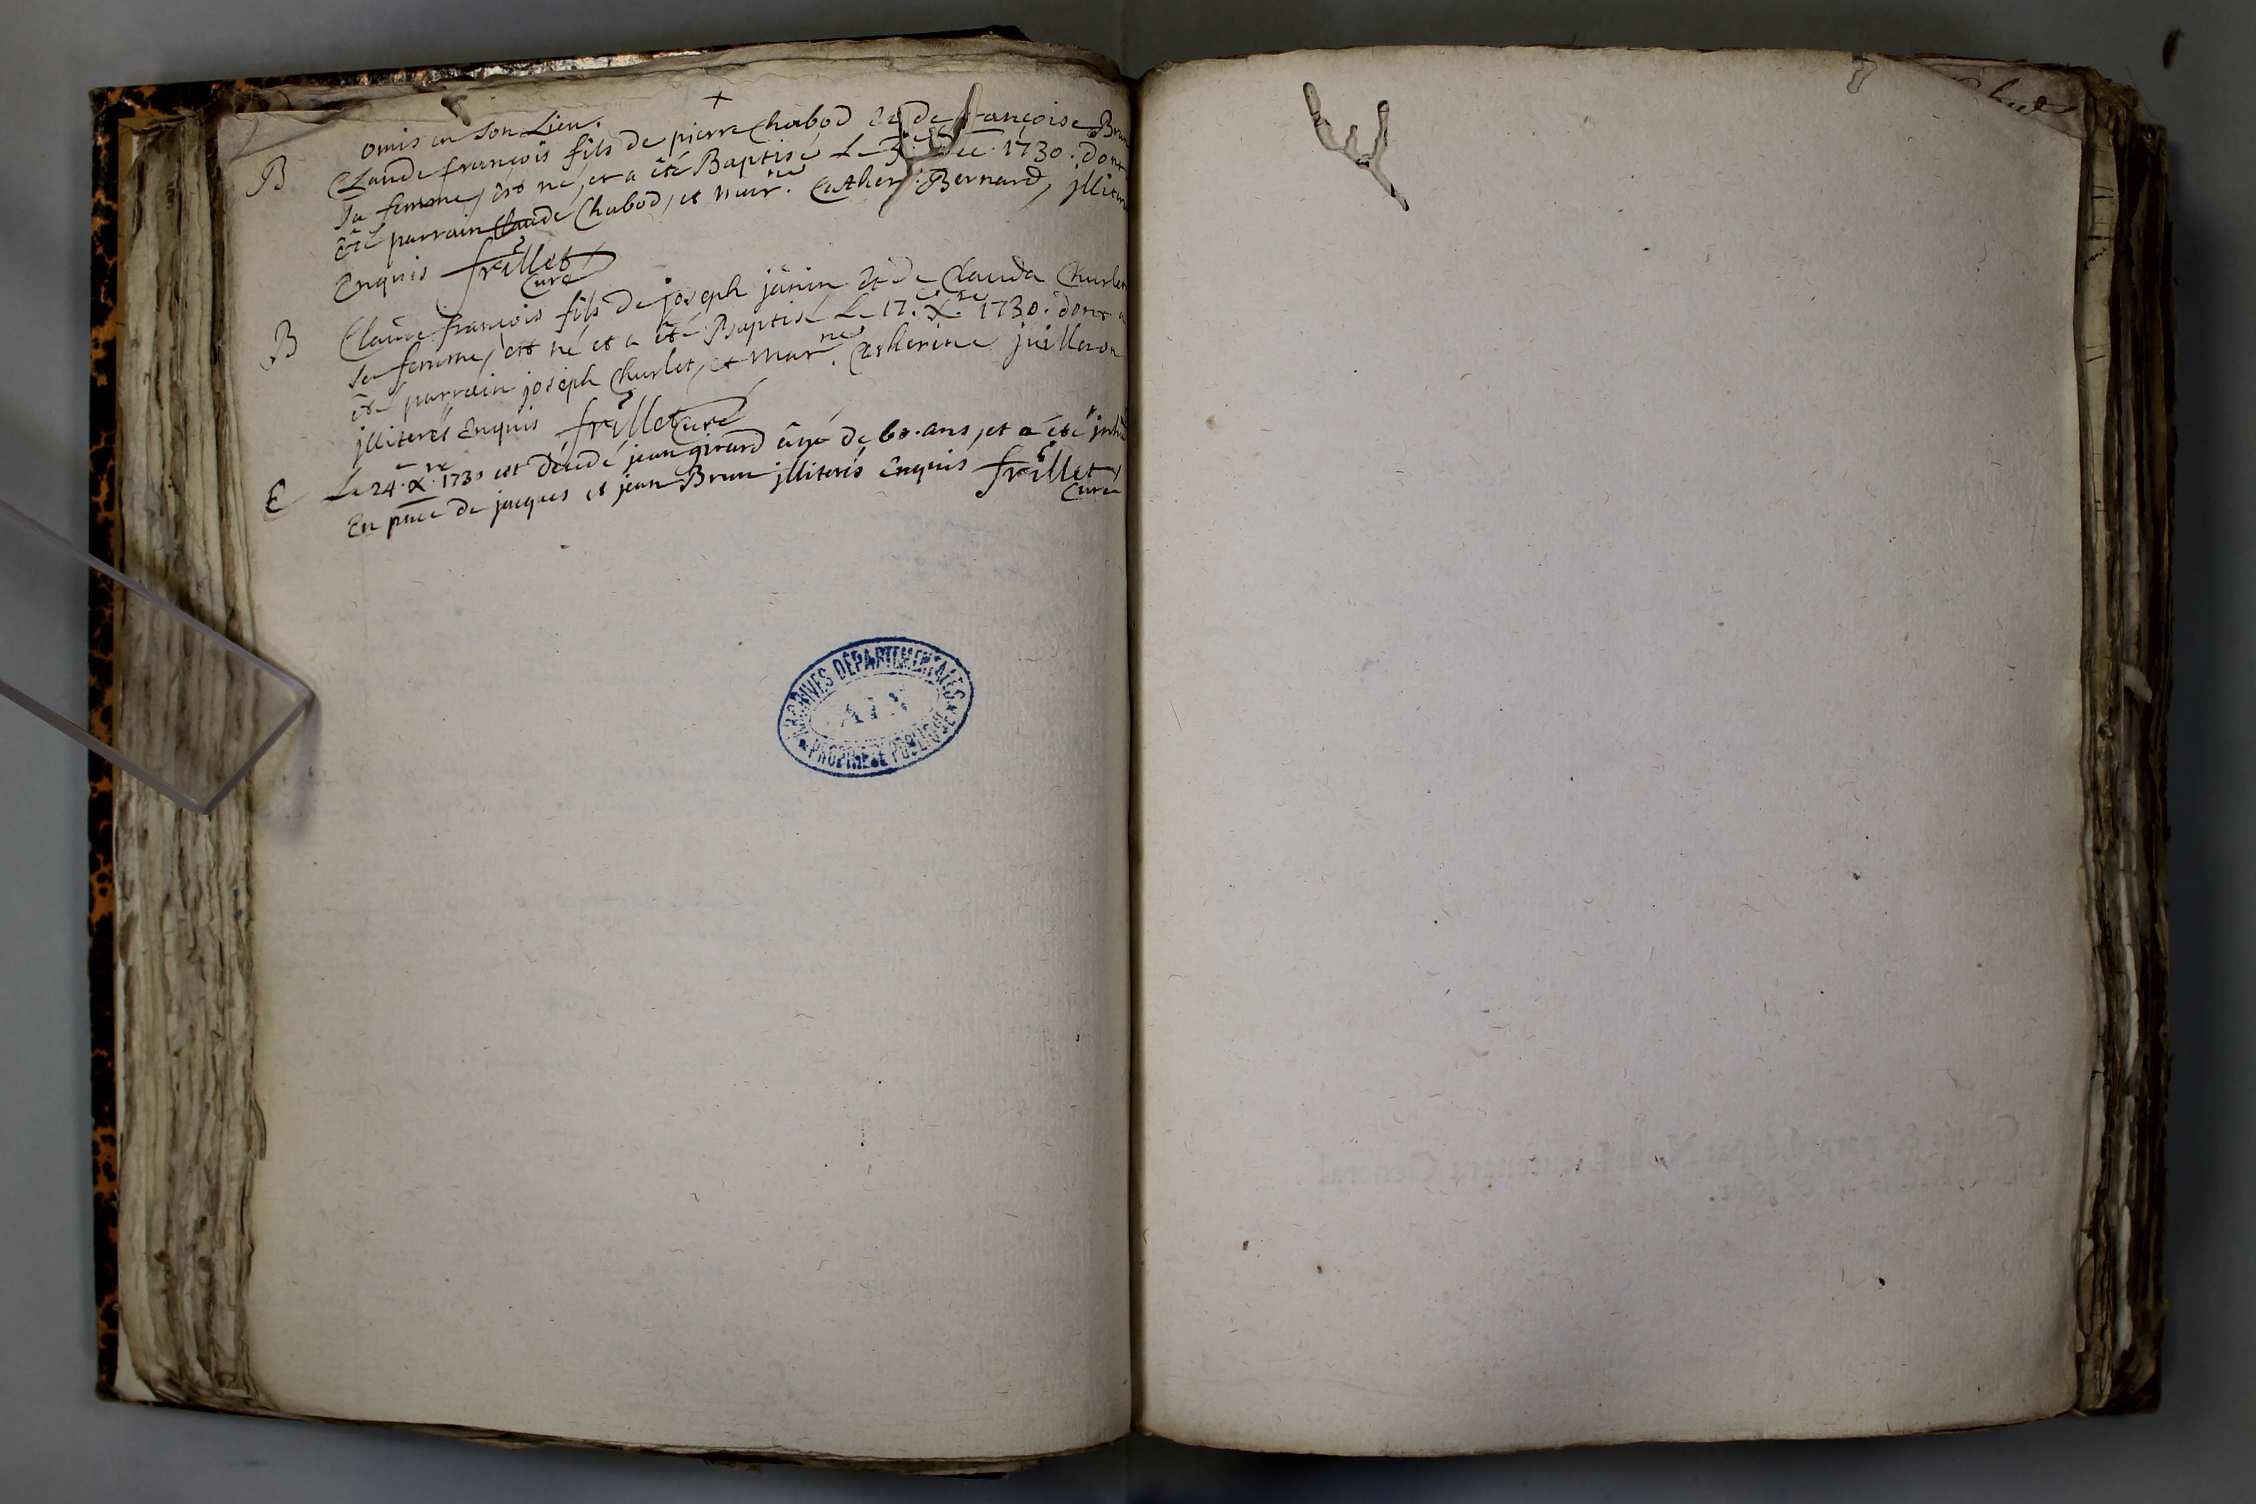 +
omis en son Lieu.
B Claude françois fils de pierre Chabod et de françoise Brun
sa femme, est né, et a êté Baptisé Le 3.e Dec. 1730. dont
êté parrain Claude Chabod, et mar.ne Cather. Bernard, jlliterés
Enquis frillet
Curé
B Claude françois fils de joseph jänin et de Clauda Churlet
sa femme, est né et a êté Baptisé Le 17. X.re 1730. dont a
êté parrain joseph Churlet, et Mar.ne Catherine juilleron
jlliterés Enquis frillet Curé
E Le 24. X.re 1730 est décédé jean girard âgé de 60. ans, et a été jnh
En pnce de jacques et jean Brun jlliterés Enquis frillet
Curé
ARCHIVES DÉPARTEMENTALES
AIN
PROPRIÉTÉ PUBLIQUE